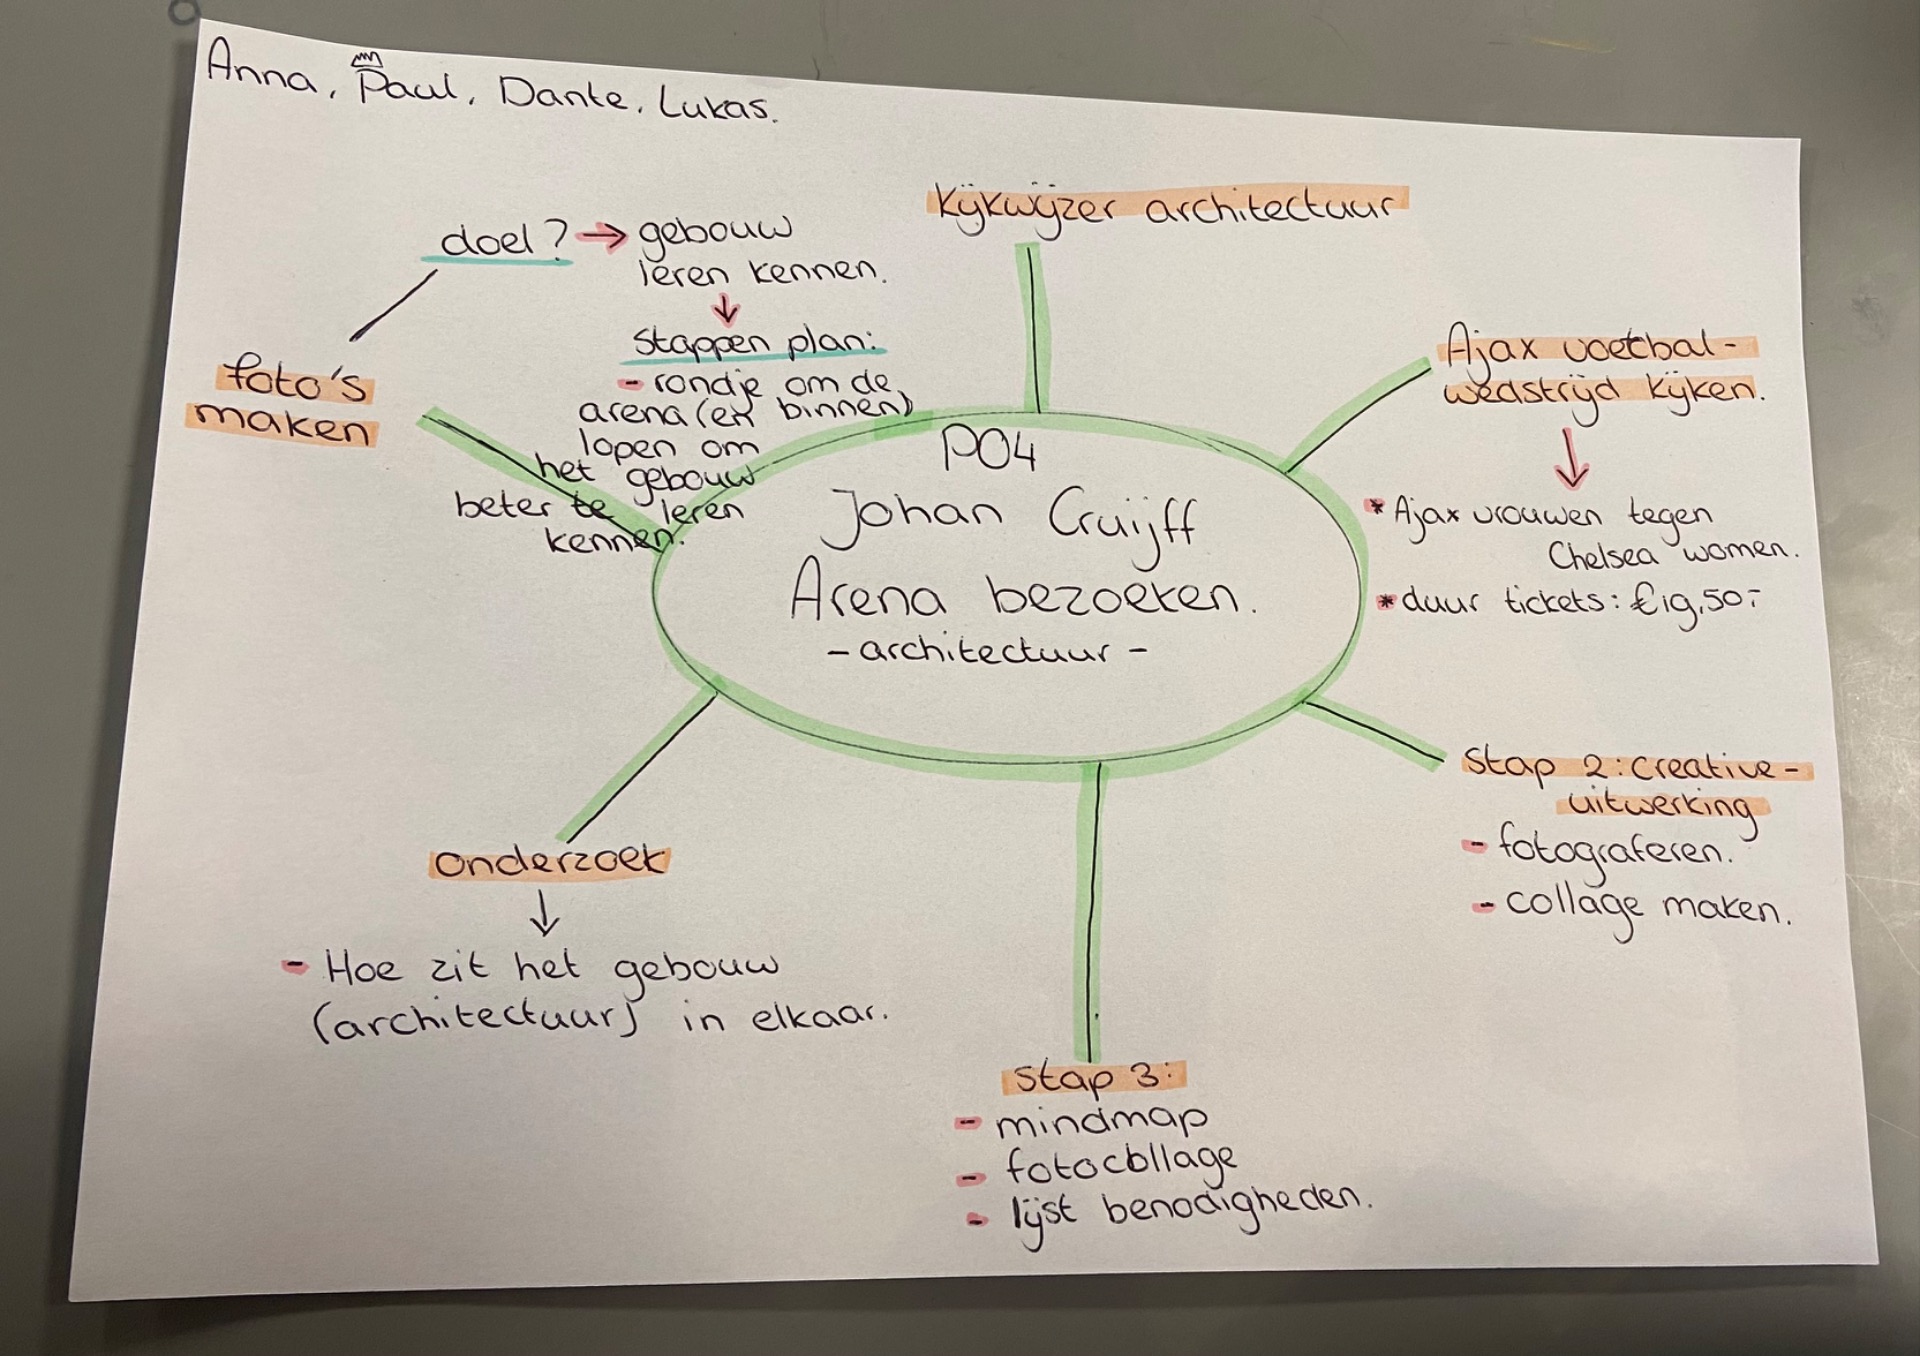 Anna, Paul, Dante, Lukas.
kijkwijzer architectuur
doel? → gebouw
leren kennen.
↓
Stappen plan:
- rondje om de
arena (en binnen)
lopen om
het gebouw
beter te leren
kennen.
foto's
maken
Ajax voetbal-
wedstrijd kijken.
↓
* Ajax vrouwen tegen
Chelsea women.
* duur tickets: €19,50,-
PO4
Johan Cruijff
Arena bezoeken.
- architectuur -
Stap 2: creative-
uitwerking
- fotograferen.
- collage maken.
onderzoek
↓
- Hoe zit het gebouw
(architectuur) in elkaar.
Stap 3:
- mindmap
- fotocollage
- lijst benodigheden.